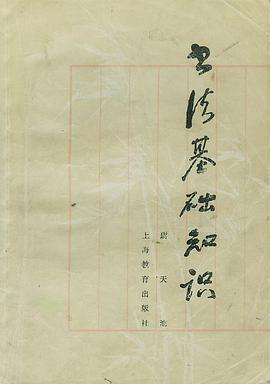 书法基础知识
尉天池
上海教育出版社